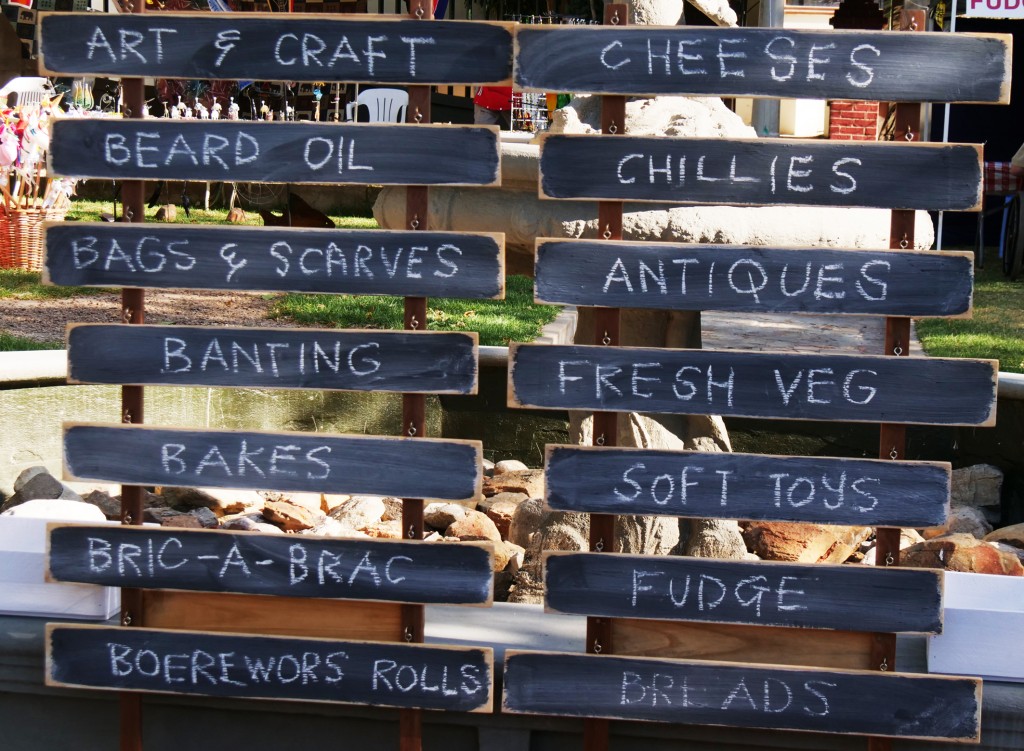 ART & CRAFT
BEARD OIL
BAGS & SCARVES
BANTING
BAKES
BRIC-A-BRAC
BOEREWORS ROLLS
CHEESES
CHILLIES
ANTIQUES
FRESH VEG
SOFT TOYS
FUDGE
BREADS